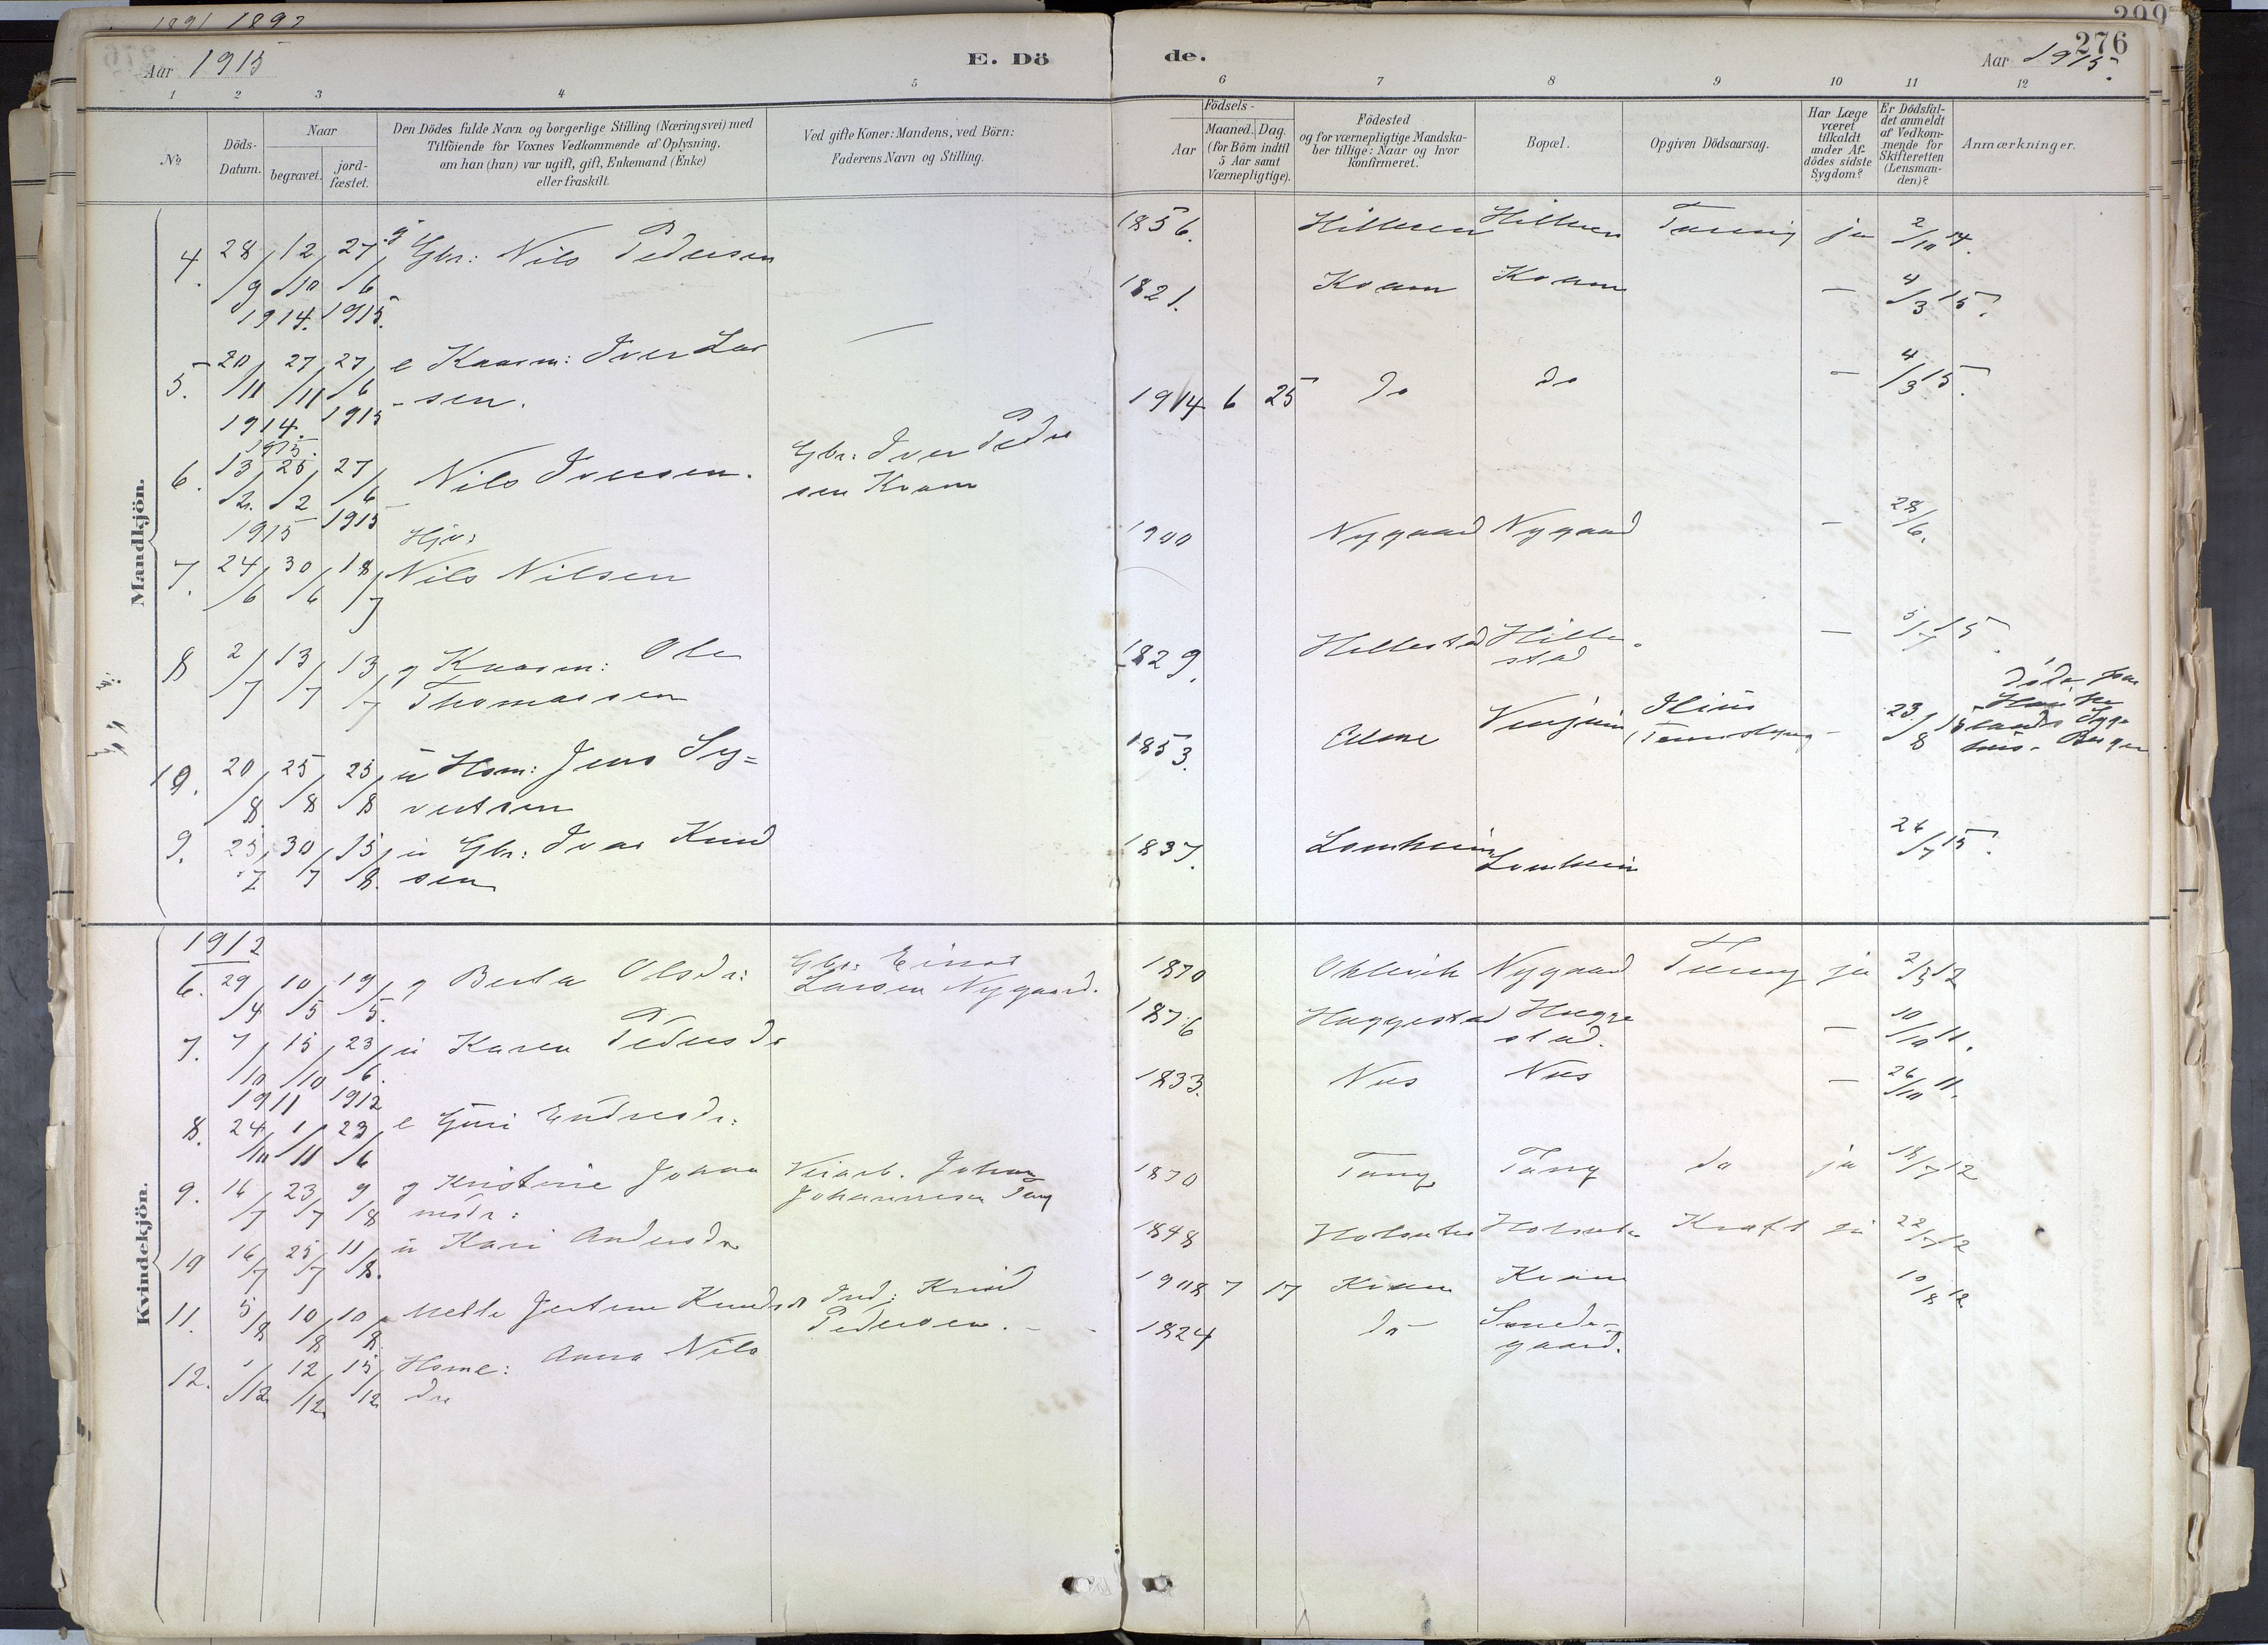 1891 1892
299
276
Aar 1915
E. Döde.
Aar 1915.
1 2 3 4 5 6 7 8 9 10 11 12
No
Döds-Datum.
Naar
begravet.
jordfæstet.
Den Dödes fulde Navn og borgerlige Stilling (Næringsvei) med
Tilföiende for Voxnes Vedkommende af Oplysning,
om han (hun) var ugift, gift, Enkemand (Enke)
eller fraskilt.
Ved gifte Koner: Mandens, ved Börn:
Faderens Navn og Stilling.
Födsels-
Aar
Maaned. Dag.
(for Börn indtil
5 Aar samt
Værnepligtige).
Födested
og for værnepligtige Mandska-
ber tillige: Naar og hvor
konfirmeret.
Bopæl.
Opgiven Dödsaarsag.
Har Læge
været
tilkaldt
under Af-
dödes sidste
Sygdom?
Er Dödsfal-
det anmeldt
af Vedkom-
mende for
Skifteretten
(Lensman-
den)?
Anmærkninger.
Mandkjön.
4. 28/9 12/10 1914. 27/6 1915. g Gbr: Nils Pedersen 1856. ja 2/10 14.
5. 20/11 27/11 1914. 27/6 1915 e Kaarm: Iver Lar
sen. 1821. Kvam Kvam — 4/3 15.
6. 13/2 25/2 1915 27/6 1915 Nils Iversen. Gbr: Iver Peder
sen Kvam 1914 6 25 do do — 4/3 15.
7. 24/6 30/6 18/7 Nils Nilsen 1900 Nygaard Nygaard — 28/6.
8 2/7 13/7 13/7 g Kaarm: Ole
Thomassen 1829. Hillestad Hille-
stad — 5/7 15.
10. 20/8 25/8 25/8 u Hsm: Jens Sy=
vertsen 1853. Vinjum 23/8 15
9. 25/7 30/7 15/8. u Gbr: Ivar Knud
sen 1837. Lomheim Lomheim 26/7 15.
Kvindekjön.
1912
6. 29/4 10/5 19/5. g Berta Olsdr: Gbr: Einar
Larsen Nygaard. 1870 Nygaard Tæring ja 2/5 12
7. 7/10 15/10 1911 23/6. 1912 u Karen Pedersdr 1876 Haggestad Hagge
stad. — 10/10 11.
8. 24/10 1/11 23/6 e Guri Endresdr: 1833. Nes Nes — 26/10 11.
9. 16/7 23/7 9/8 g Kristine Johan
nesdr: Veiarb. Johan
Johannesen Tang 1870 Tang Tang do ja 18/7 12
10 16/7 25/7 11/8. u Kari Andersdr 1848 Holsæter Holsæter Kræft ja 22/7 12
11. 5/8 10/8 10/8 Mette Jertine Knudsdr Ind: Knud
Pedersen. 1908 7 17 Kvam Kvam 10/8 12
12. 1/12 12/12 15/12 Hsme: Anna Nils
dr 1824 do Smeds-
gaard.